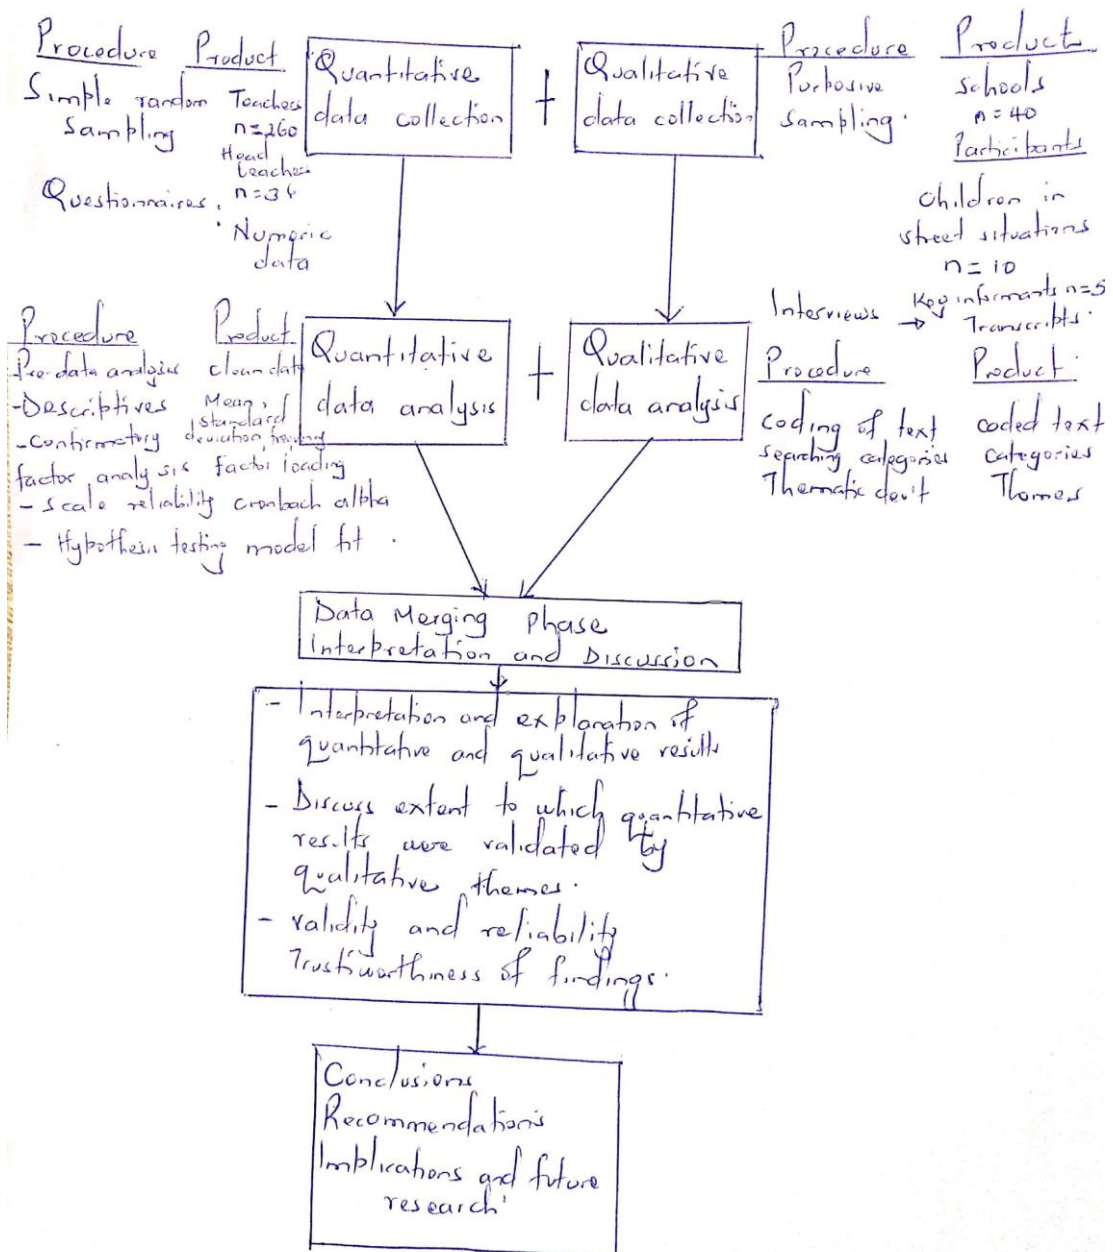 Procedure Product
Simple random Teachers
Sampling n=260
Head
teachers
Questionnaires. n=34
Numeric
data
Quantitative
data collection
+
Qualitative
data collection
Procedure Product
Purposive schools
Sampling. n=40
Participants
children in
street situations
n=10
Interviews → Key informants n=5
Transcripts.
Procedure Product
Pre-data analysis clean data
-Descriptives Mean,
standard
-Confirmatory deviation,
factor analysis factor loading
- scale reliability cronbach alpha
- Hypothesis testing model fit.
Quantitative
data analysis
+
Qualitative
data analysis
Procedure Product
coding of text coded text
searching categories categories
Thematic dev't Themes
Data Merging Phase
Interpretation and Discussion
- Interpretation and explanation of
quantitative and qualitative results
- Discuss extent to which quantitative
results were validated by
qualitative themes.
- validity and reliability
Trustworthiness of findings.
Conclusions
Recommendations
Implications and future
research